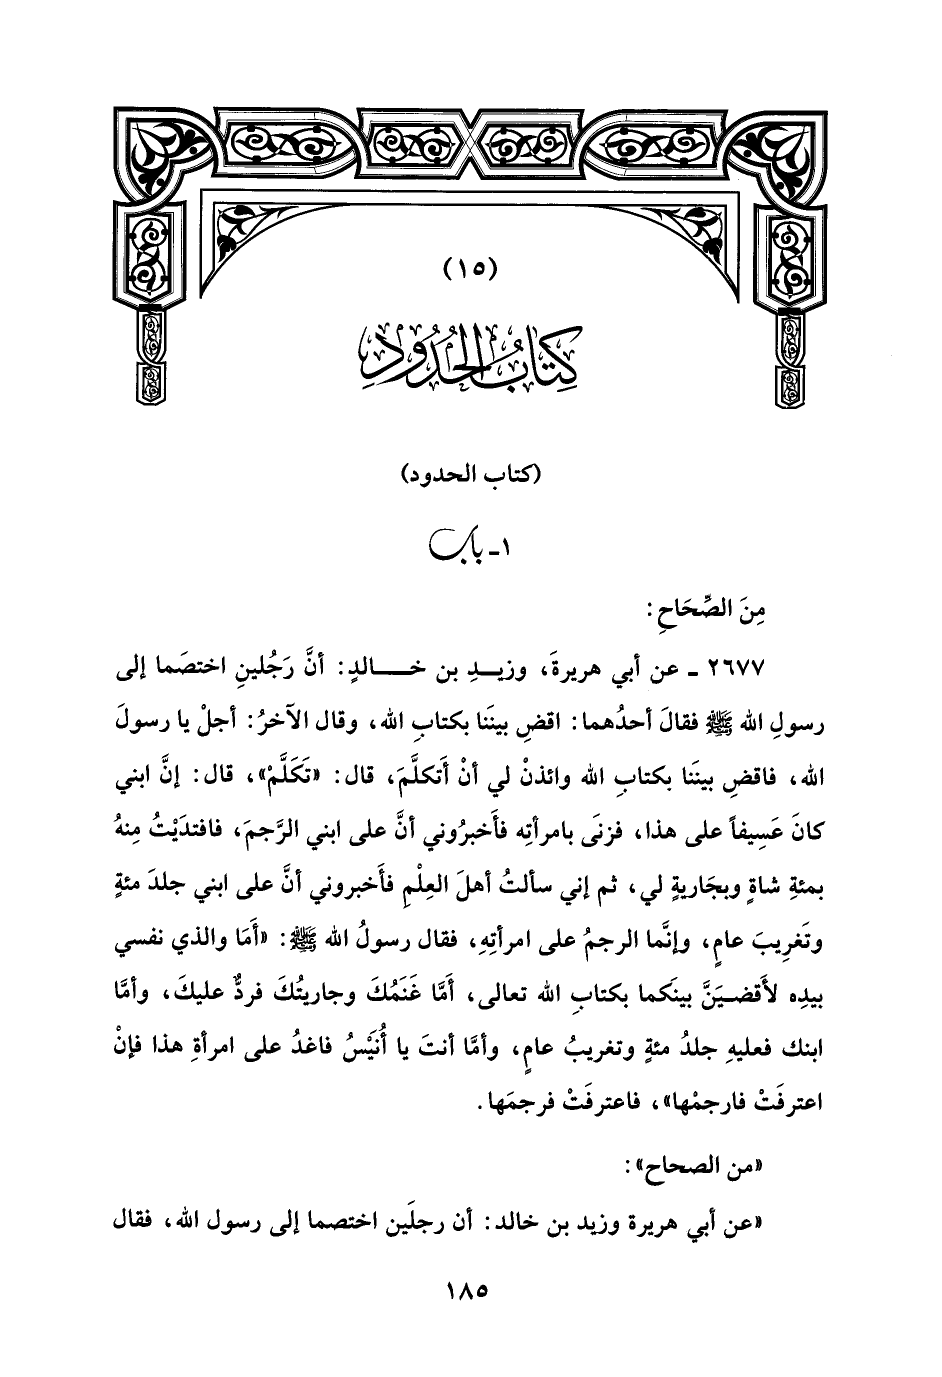 (١٥)
كِتَابُ الحُدُودِ
(كتاب الحدود)
١ - باب
مِنَ الصِّحَاحِ:
٢٦٧٧ - عن أبي هريرةَ، وزيدِ بن خالدٍ: أنَّ رَجُلينِ اختصَما إلى
رسولِ الله ﷺ فقالَ أحدُهما: اقضِ بينَنا بكتابِ الله، وقال الآخرُ: أجلْ يا رسولَ
الله، فاقضِ بينَنا بكتابِ الله وائذنْ لي أنْ أَتكلَّمَ، قال: «تَكَلَّمْ»، قال: إنَّ ابني
كانَ عَسِيفاً على هذا، فزنَى بامرأتِه فأَخبرُوني أنَّ على ابني الرَّجمَ، فافتدَيْتُ مِنهُ
بمئةِ شاةٍ وبجَاريةٍ لي، ثم إني سألتُ أهلَ العِلْمِ فأَخبروني أنَّ على ابني جلدَ مئةٍ
وتَغرِيبَ عامٍ، وإنَّما الرجمُ على امرأتِهِ، فقال رسولُ الله ﷺ: «أَمَا والذي نفسي
بيدِه لأَقضيَنَّ بينَكما بكتابِ الله تعالى، أَمَّا غَنَمُكَ وجاريتُكَ فردٌّ عليكَ، وأمَّا
ابنك فعليهِ جلدُ مئةٍ وتغريبُ عامٍ، وأمَّا أنتَ يا أُنَيْسُ فاغدُ على امرأةِ هذا فإنْ
اعترفَتْ فارجمْها»، فاعترفَتْ فرجمَها.
«من الصحاح»:
«عن أبي هريرة وزيد بن خالد: أن رجلَين اختصما إلى رسول الله، فقال
١٨٥